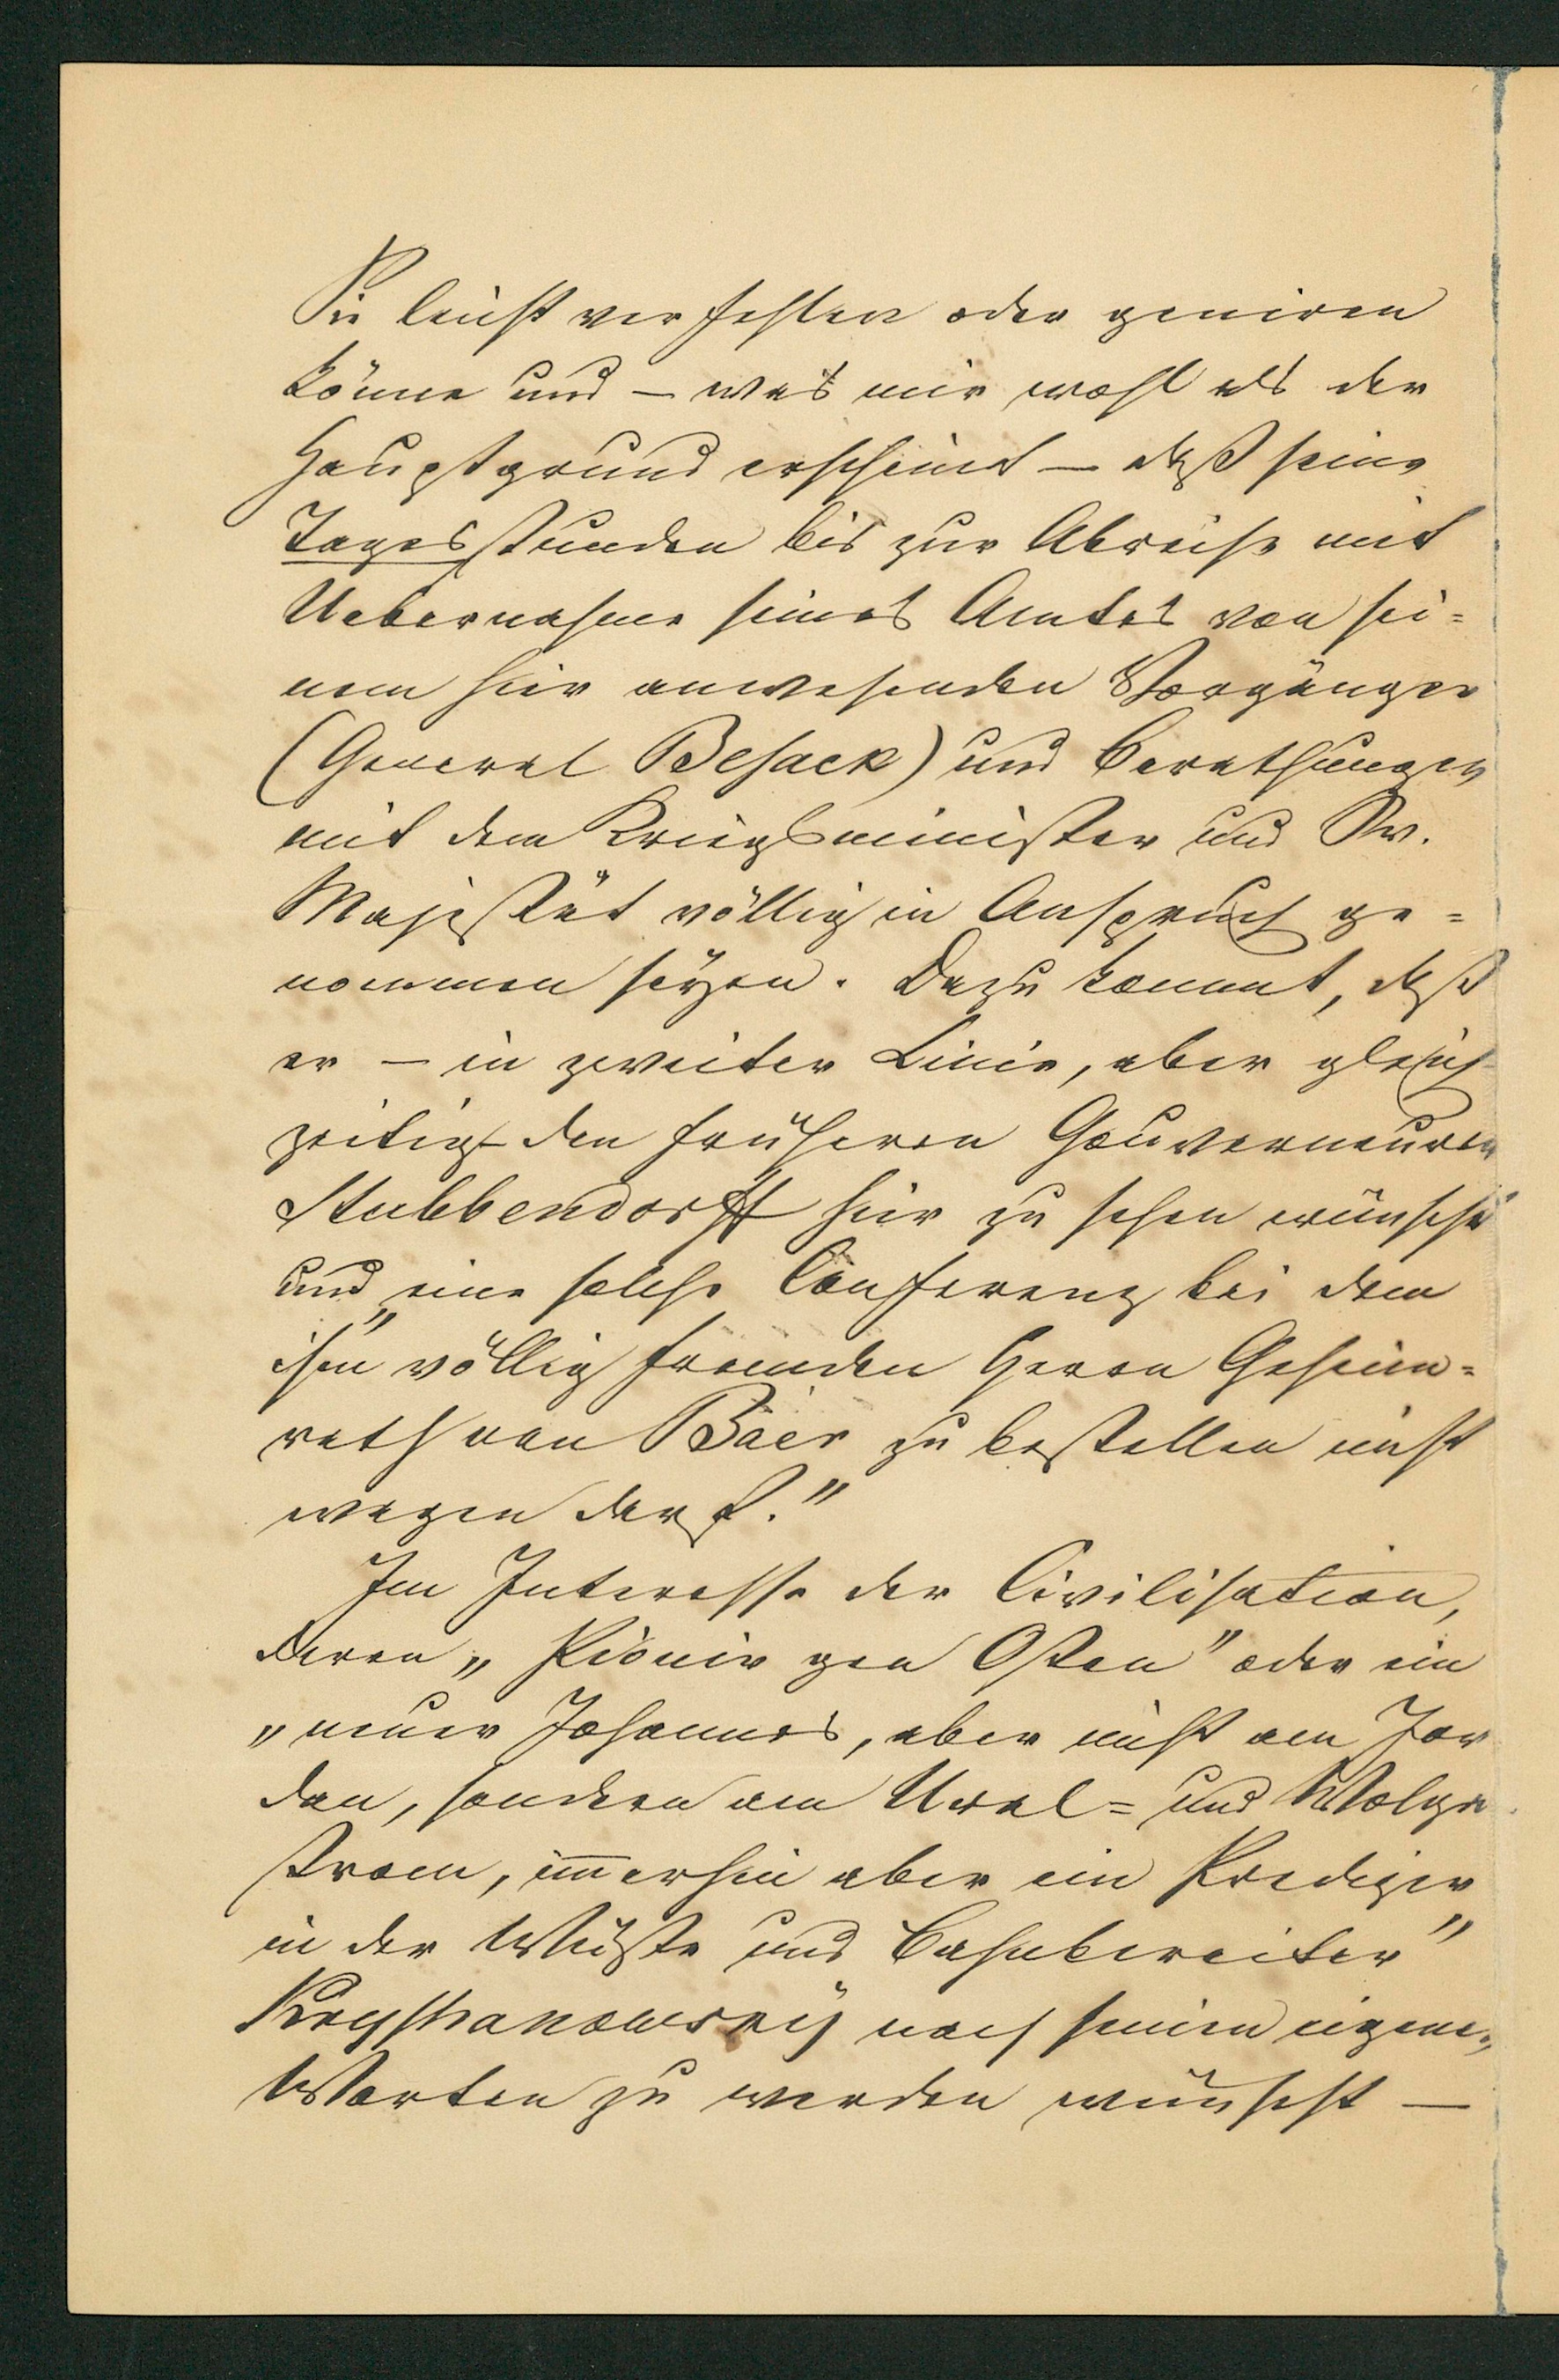 Sie leicht verfehlen oder geniren
könne und – was mir wohl als der
Hauptgrund erscheint – daß seine
Tagesstunden bis zur Abreise mit
Uebernahme seines Amtes von sei=
nem hier anwesenden Vorgänger
(General Besack) und Berathungen
mit dem Kriegsminister und Sr.
Majestät völlig in Anspruch ge=
nommen seyen. Dazu kommt, daß
er – in zweiter Linie, aber gleich
zeitig – den früheren Gouverneuren
Stubbendorff hier zu sehen wünscht
und „eine solche Conferenz bei dem
ihm völlig fremden Herrn Geheim=
rath von Baer zu bestellen nicht
wagen darf."
Im Interesse der Civilisation,
deren „Pionir gen Osten" oder ein
„neuer Johannes, aber nicht am Jor
dan, sondern am Ural= und Wolga
strom, im̄erhin aber ein Prediger
in der Wüste und Bahnbereiter"
Kryshanowsky nach seinen eigenen
Worten zu werden wünscht –